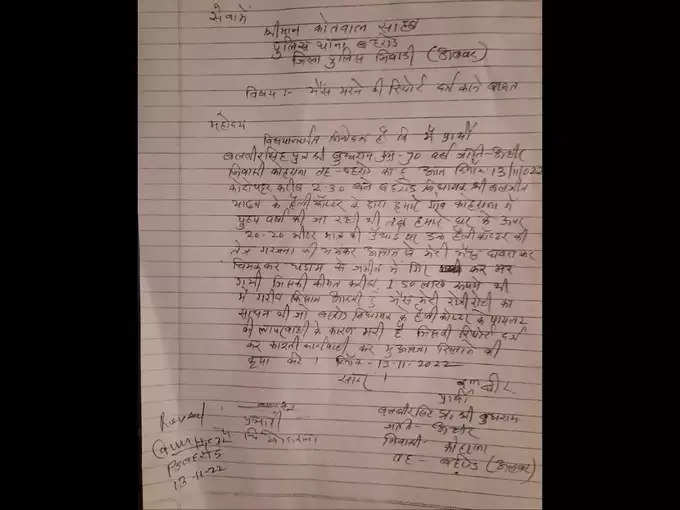 सेवामें
श्रीमान कोतवाल साहब
पुलिस थाना बहरोड
जिला पुलिस भिवाडी (अलवर)
विषय :- भैंस मरने की रिपोर्ट दर्ज कराने बाबत
महोदय
विषयान्तर्गत निवेदन है कि मैं प्रार्थी
बलबीर सिंह पुत्र श्री उम्र-70 वर्ष जाति-अहीर
निवासी कोहराना तह-बहरोड का हूं आज दिनांक 13/11/2022
को दोपहर करीब 2-30 बजे बहरोड विधायक श्री बलजीत
यादव के हैलीकॉप्टर के द्वारा हमारे गांव कोहराना में
पुष्प वर्षा की जा रही थी हमारे घर के ऊपर
20-20 मीटर की ऊंचाई पर उक्त हैलीकॉप्टर की
तेज गरजना की भयंकर आवाज से मेरी भैंस
के जमीन में गिर कर मर
गयी जिसकी कीमत करीब 1.50 लाख रूपये थी
में गरीब किसान आदमी हूं भैंस मेरी रोजी रोटी का
साधन थी जो बहरोड विधायक के हैलीकॉप्टर के पायलट
की लापरवाही के कारण मरी है जिसकी रिपोर्ट दर्ज
कर कानूनी कार्यवाही कर मुआवजा दिलाने की
कृपा करे। दिनांक-13-11-2022
प्रार्थी
बलबीर सिंह पुत्र श्री
जाति- अहीर
निवासी- कोहराना
तह- बहरोड (अलवर)
13-11-22